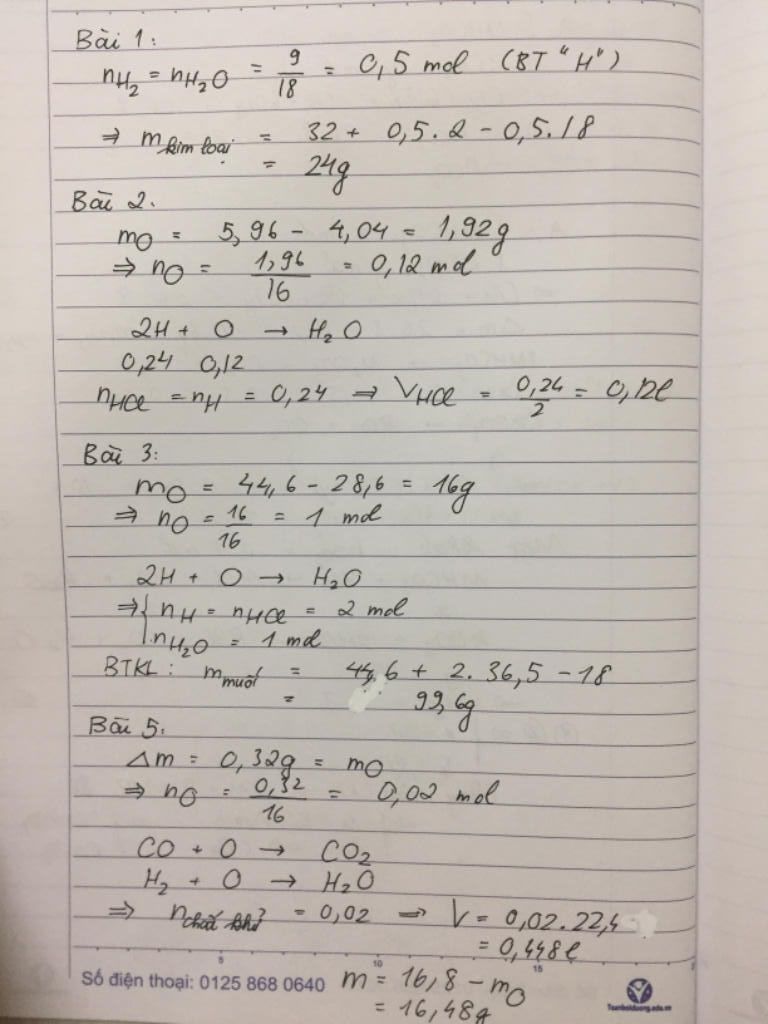 Bài 1:
nH₂ = nH₂O = 9/18 = 0,5 mol (BT "H")
⇒ m kim loại = 32 + 0,5.2 - 0,5.18
= 24g
Bài 2.
mO = 5,96 - 4,04 = 1,92g
⇒ nO = 1,96/16 = 0,12 mol
2H + O → H₂O
0,24 0,12
nHCl = nH = 0,24 ⇒ VHCl = 0,24/2 = 0,12l
Bài 3:
mO = 44,6 - 28,6 = 16g
⇒ nO = 16/16 = 1 mol
2H + O → H₂O
⇒ { nH = nHCl = 2 mol
nH₂O = 1 mol
BTKL: m muối = 44,6 + 2.36,5 - 18
= 99,6g
Bài 5:
Δm = 0,32g = mO
⇒ nO = 0,32/16 = 0,02 mol
CO + O → CO₂
H₂ + O → H₂O
⇒ n chất khử = 0,02 ⇒ V = 0,02.22,4
= 0,448l
5 10 15
Số điện thoại: 0125 868 0640 m = 16,8 - mO
= 16,48g